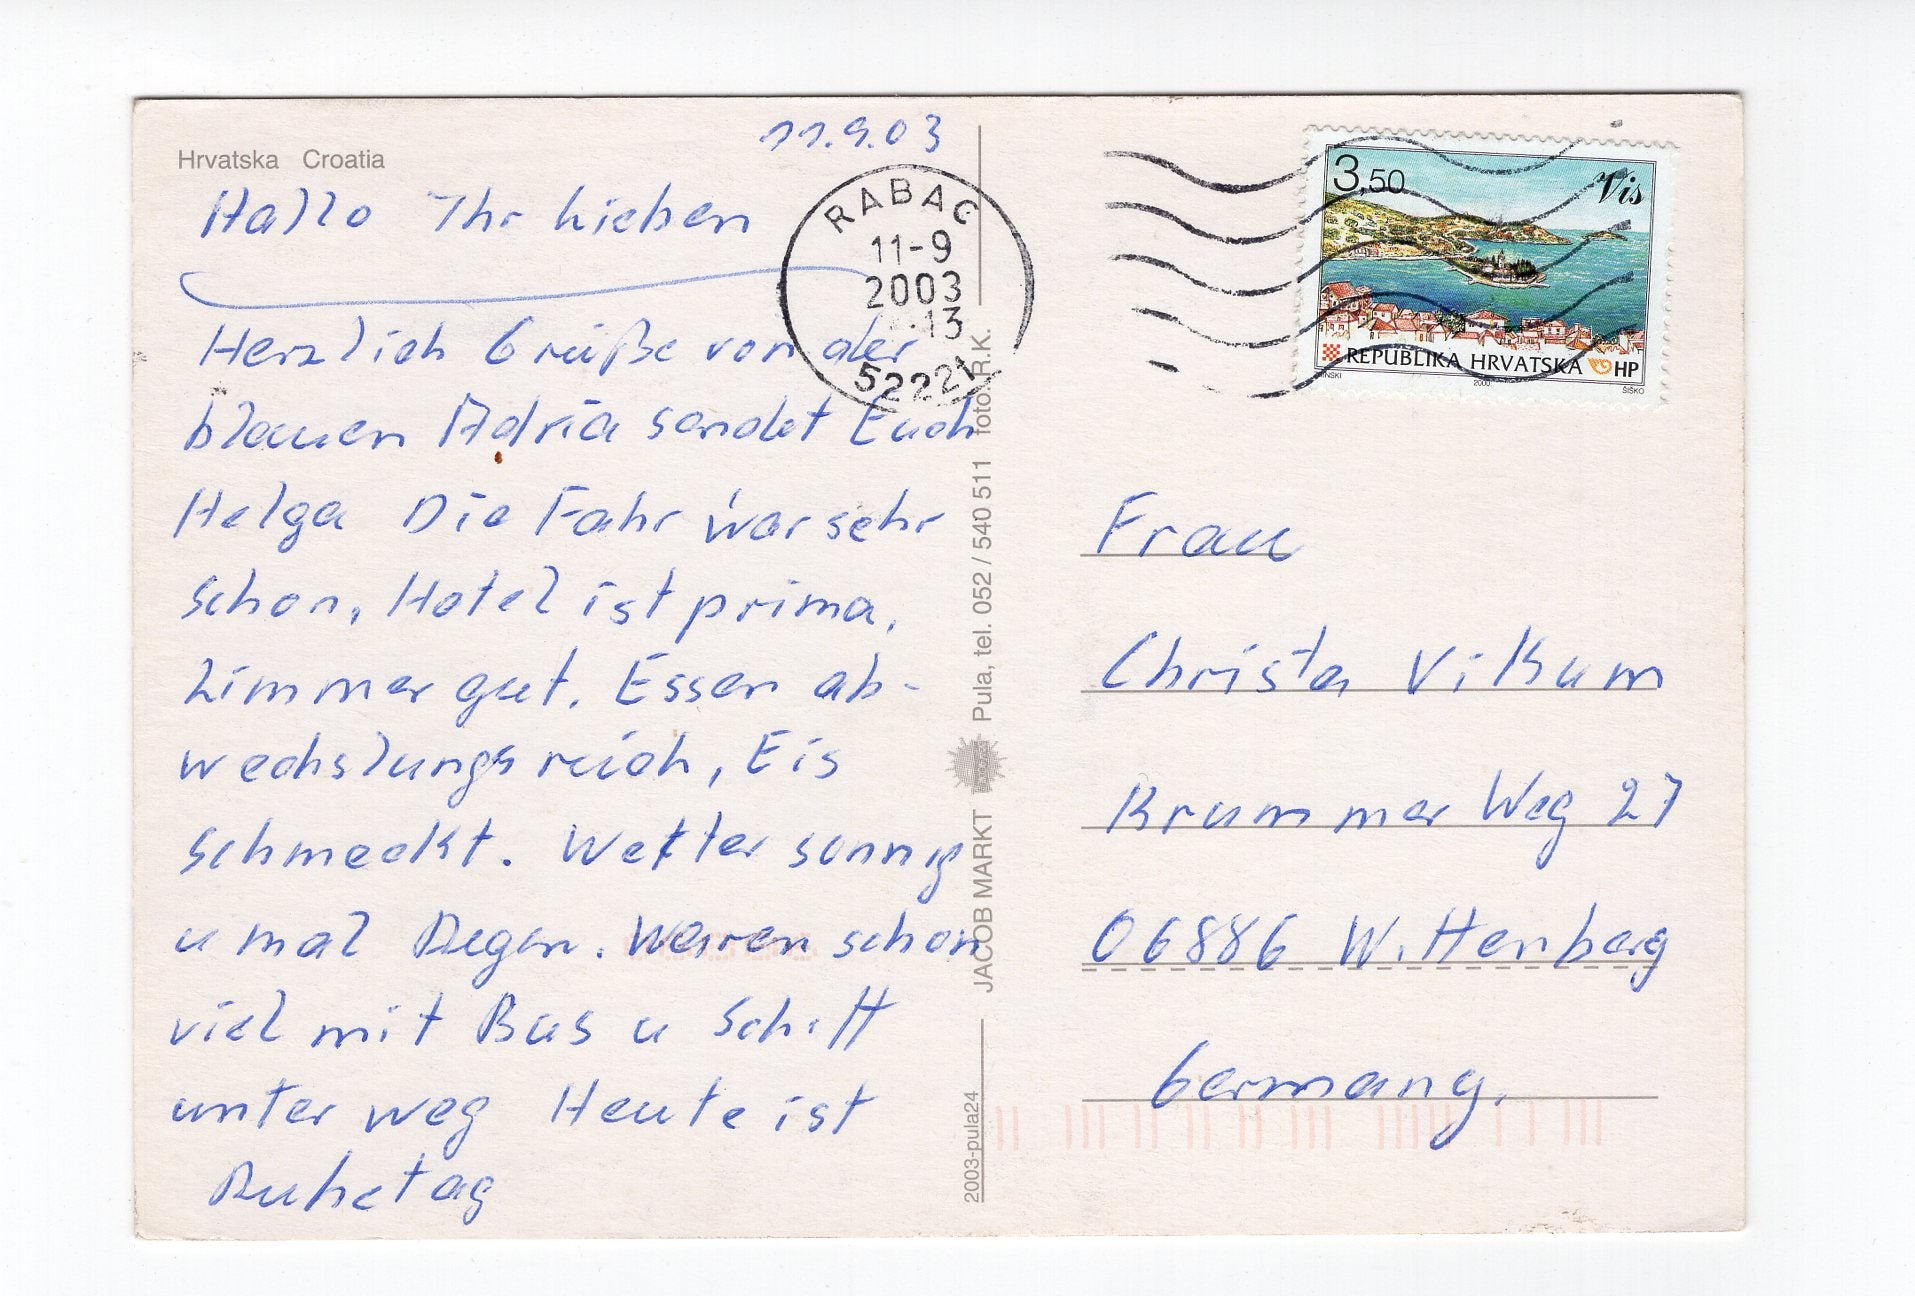 Hrvatska Croatia
11.9.03
Hallo Ihr Lieben
Herzlich Grüße von der
blauen Adria sendet Euch
Helga Die Fahr war sehr
schon, Hotel ist prima,
Zimmer gut. Essen ab-
wechslungsreich, Eis
schmeckt. Wetter sonnig
u mal Regen. Waren schon
viel mit Bus u Schiff
unter weg Heute ist
Ruhetag
RABAC
11-9
2003
13
52221
2003-pula24
JACOB MARKT Pula, tel. 052 / 540 511 foto: R.K.
3,50
Vis
REPUBLIKA HRVATSKA HP
2000
ŠIŠKO
Frau
Christa Vikum
Krummer Weg 27
06886 Wittenberg
Germany.